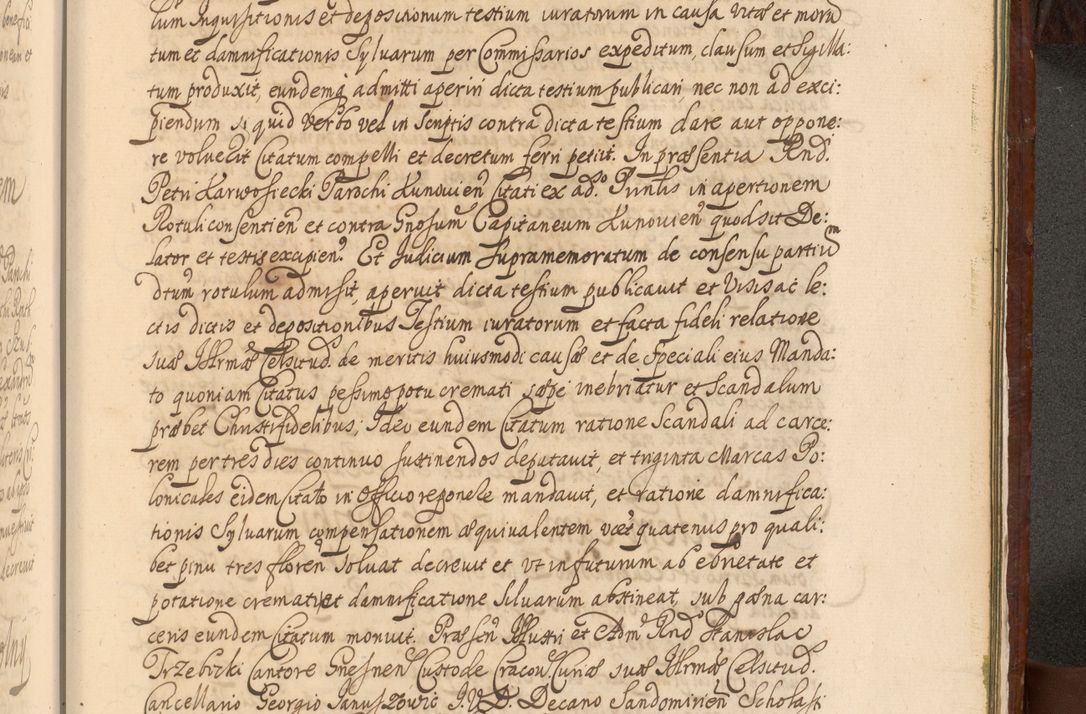 tum Inquisitionis et depositionum testium iuratorum in causa vitæ et moru
tum et damnificationis Sylvarum per Commissarios expeditum, clausum et Sigilla:
tum produxit, eundemq admitti aperiri dicta testium publicari, nec non ad exci:
piendum si quid verbo vel in Scriptis contra dicta testium dare aut oppone:
re voluerit Citatum compelli et decretum ferri petiit. In præsentia Rnd.
Petri Karwosiecki Parochi Kunovien Citati ex ad.so Pnntis in apertionem
Rotuli consentien et contra Gnosum Capitaneum Kunovien quod sit De:
lator et testis excipien. Et Iudicium Supramemoratum de consensu partiu
dtum rotulum admisit, aperuit dicta testium publicavit et visis ac le:
ctis dictis et depositionibus Testium iuratorum et facta fideli relatione
suæ Illrmæ Celsitud. de meritis huiusmodi causæ et de speciali eius Manda:
to quoniam Citatus pessimo potu cremati sæpe inebriatur et Scandalum
præbet Christifidelibus; Ideo eundem Citatum ratione Scandali ad carce:
rem per tres dies continuo sustinendos deputavit, et triginta Marcas Po:
lonicales eidem Citato in Officio reponere mandavit, et ratione damnifica:
tionis Sylvarum compensationem æquivalentem quatenus pro quali:
bet pinu tres floren Solvat decrevit et ut in futurum ab ebrietate et
potatione cremati et damnificatione Silvarum abstineat, sub pæna car:
ceris eundem Citatum monuit. Præsen Illustri et Adm Rnd Stanislao
Trzebicki Cantore Gnesnen Custode Cracov Curiæ suæ Illrmæ Celsitud.
Cancellario Georgio Januszowic I.V.D. Decano Sandomirien Scholasti